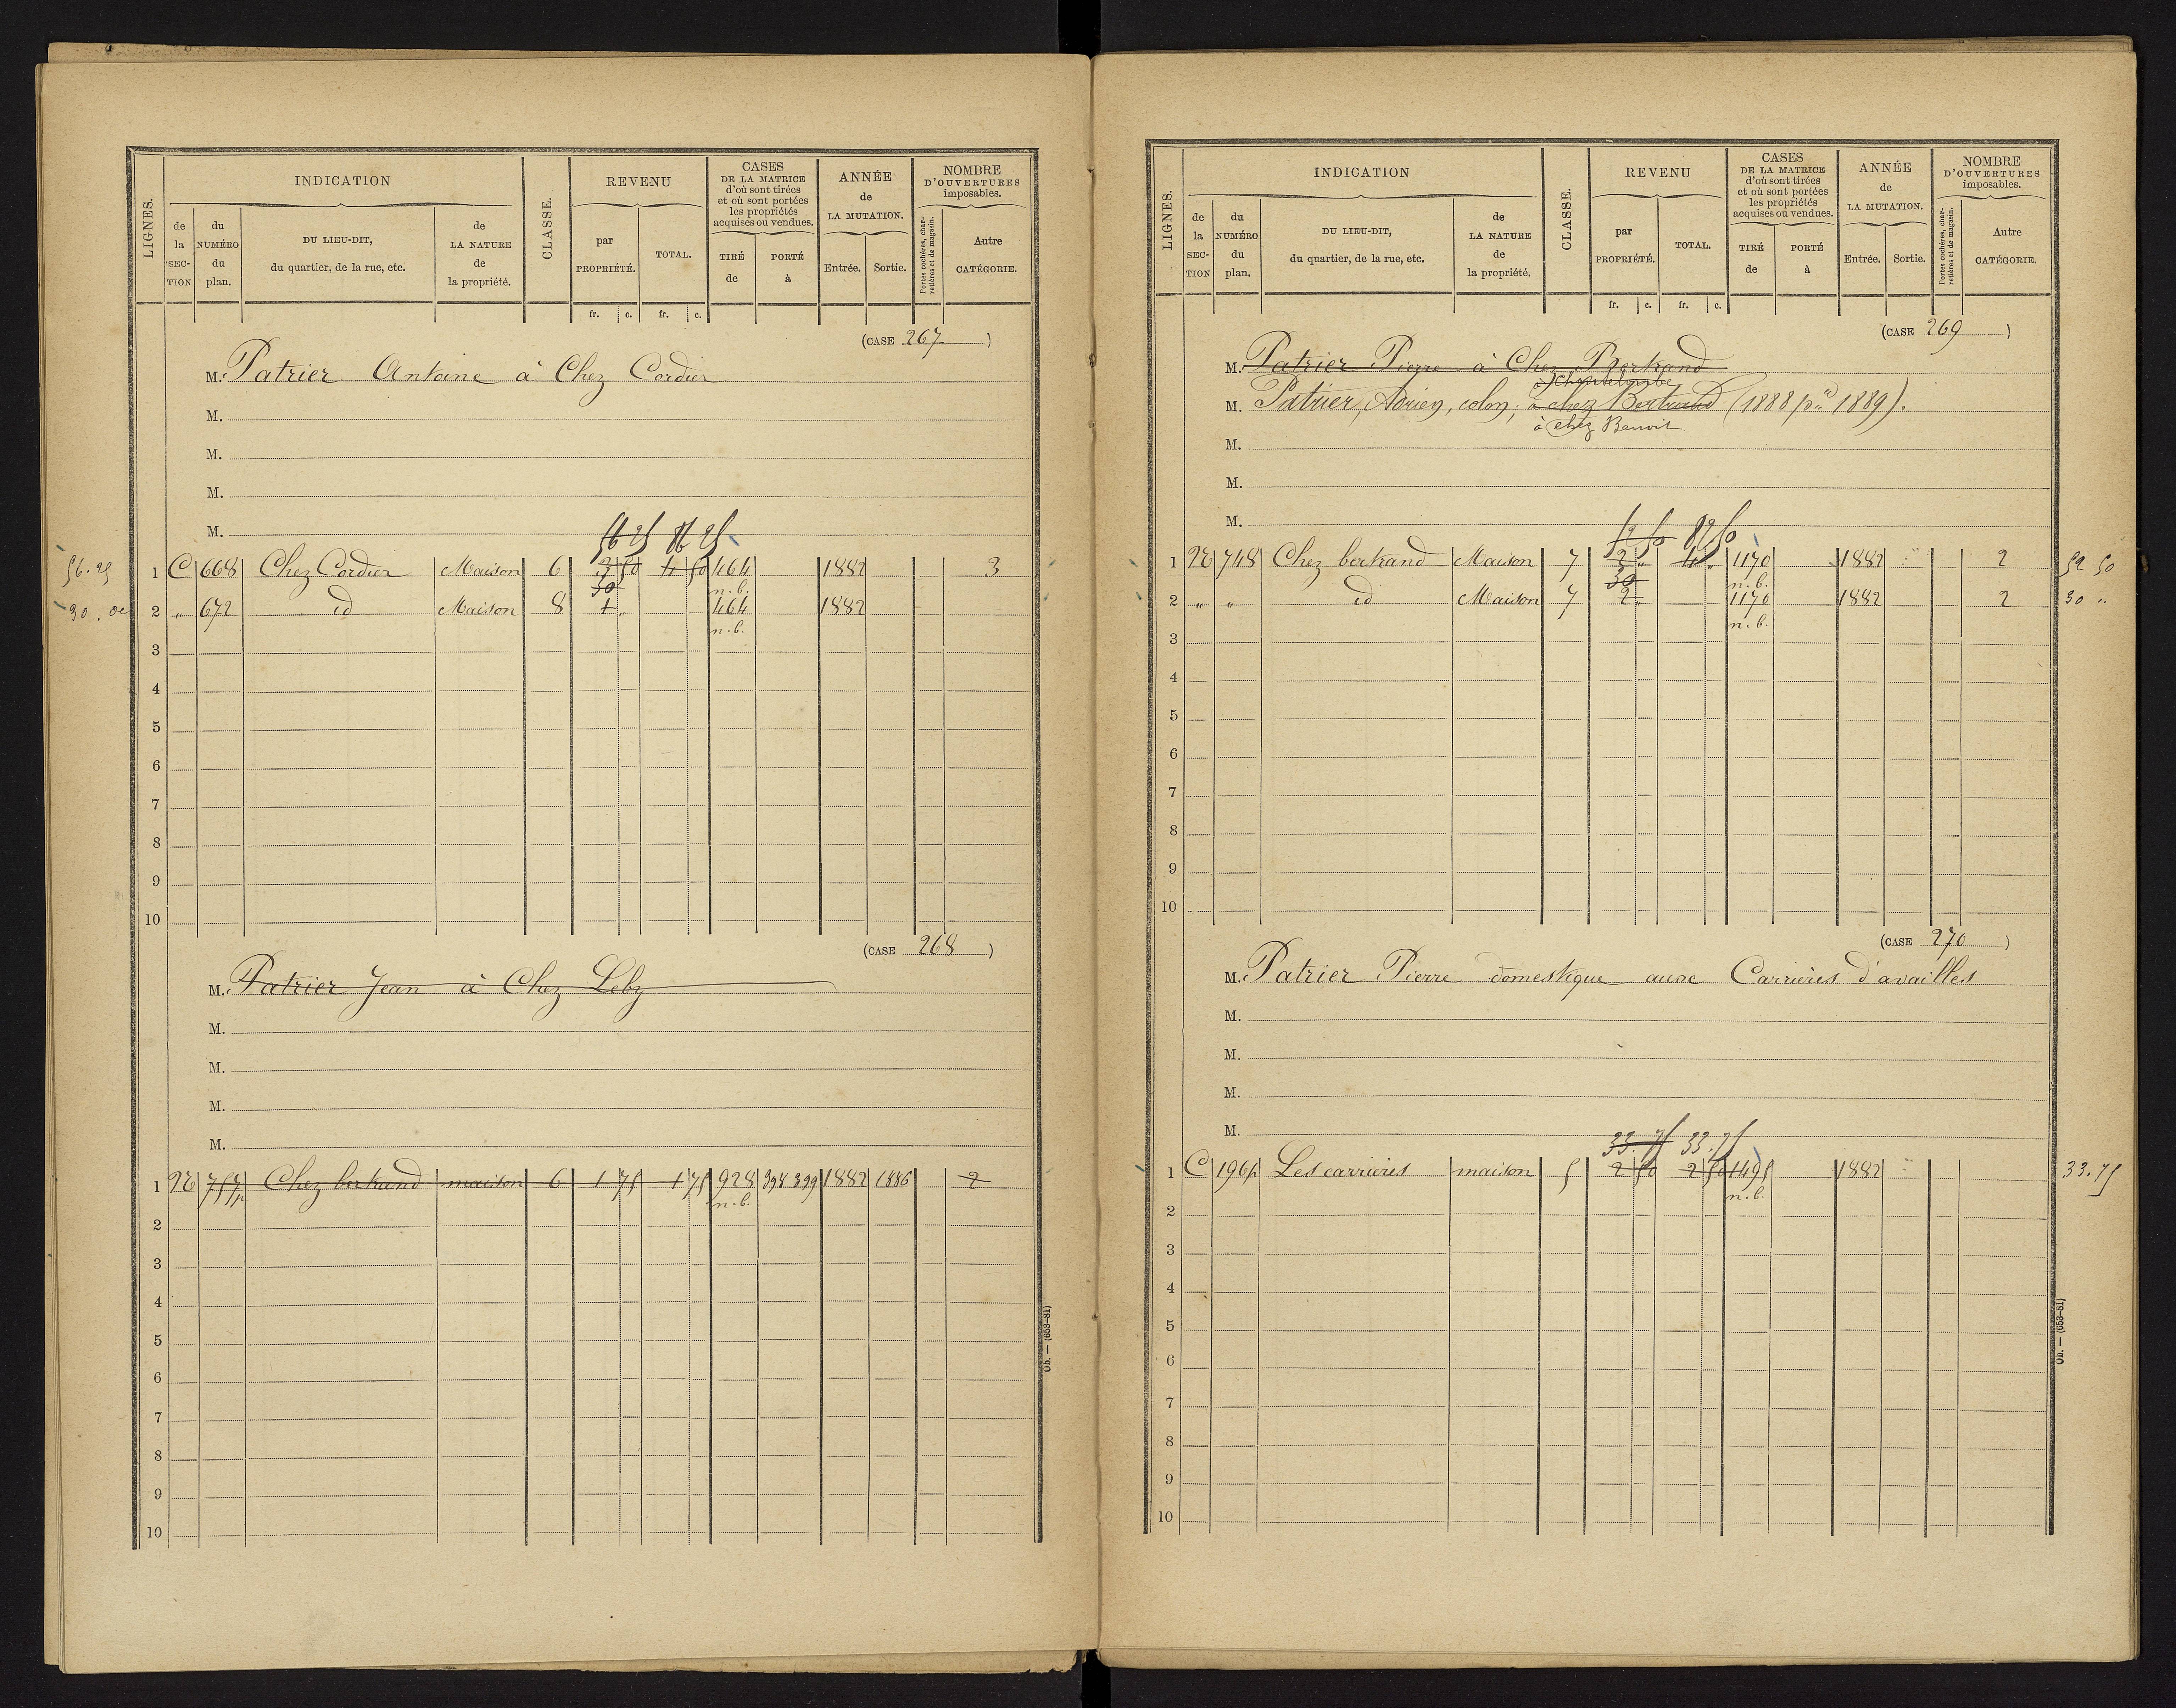 LIGNES.
INDICATION
de la SEC-TION
du NUMÉRO du plan.
DU LIEU-DIT, du quartier, de la rue, etc.
de LA NATURE de la propriété.
CLASSE.
REVENU
par PROPRIÉTÉ.
TOTAL.
CASES DE LA MATRICE d'où sont tirées et où sont portées les propriétés acquises ou vendues.
TIRÉ de
PORTÉ à
ANNÉE de LA MUTATION.
Entrée.
Sortie.
NOMBRE D'OUVERTURES imposables.
Portes cochères, charretières et de magasin.
Autre CATÉGORIE.
fr. c. fr. c.
(CASE 267)
M. Patrier Antoine à Chez Cordier
M.
M.
M.
M.
56 25 86 25
56.25 1 C 668 Chez Cordier Maison 6 3 50 4 50 464 1882 3
30 n.b.
30.00 2 " 672 id Maison 8 1 " 464 1882
n.b.
3
4
5
6
7
8
9
10
(CASE 268)
M. Patrier Jean à Chez Leby
M.
M.
M.
M.
1 757p Chez bertrand maison 6 1 75 1 75 928 398 399 1882 1886 2
n.b.
2
3
4
5
6
7
8
9
10
Ob. — (653-81)
LIGNES.
INDICATION
de la SEC-TION
du NUMÉRO du plan.
DU LIEU-DIT, du quartier, de la rue, etc.
de LA NATURE de la propriété.
CLASSE.
REVENU
par PROPRIÉTÉ.
TOTAL.
CASES DE LA MATRICE d'où sont tirées et où sont portées les propriétés acquises ou vendues.
TIRÉ de
PORTÉ à
ANNÉE de LA MUTATION.
Entrée.
Sortie.
NOMBRE D'OUVERTURES imposables.
Portes cochères, charretières et de magasin.
Autre CATÉGORIE.
fr. c. fr. c.
(CASE 269)
M. Patrier Pierre à Chez Bertrand
à Chantelombe
M. Patrier, Adrien, colon, à chez Bertrand (1888 pr 1889).
à chez Benoit
M.
M.
M.
52 50 82 50
1 748 Chez bertrand Maison 7 2 " 4 " 1170 1882 2 52 50
30 n.b.
2 " " id Maison 7 2 " 1170 1882 2 30 "
n.b.
3
4
5
6
7
8
9
10
(CASE 270)
M. Patrier Pierre domestique aux Carrières d'availles
M.
M.
M.
M.
33.75 33.75
1 C 196p Les carrieres maison 5 2 50 2 50 1495 1882 33.75
n.b.
2
3
4
5
6
7
8
9
10
Ob. — (653-81)